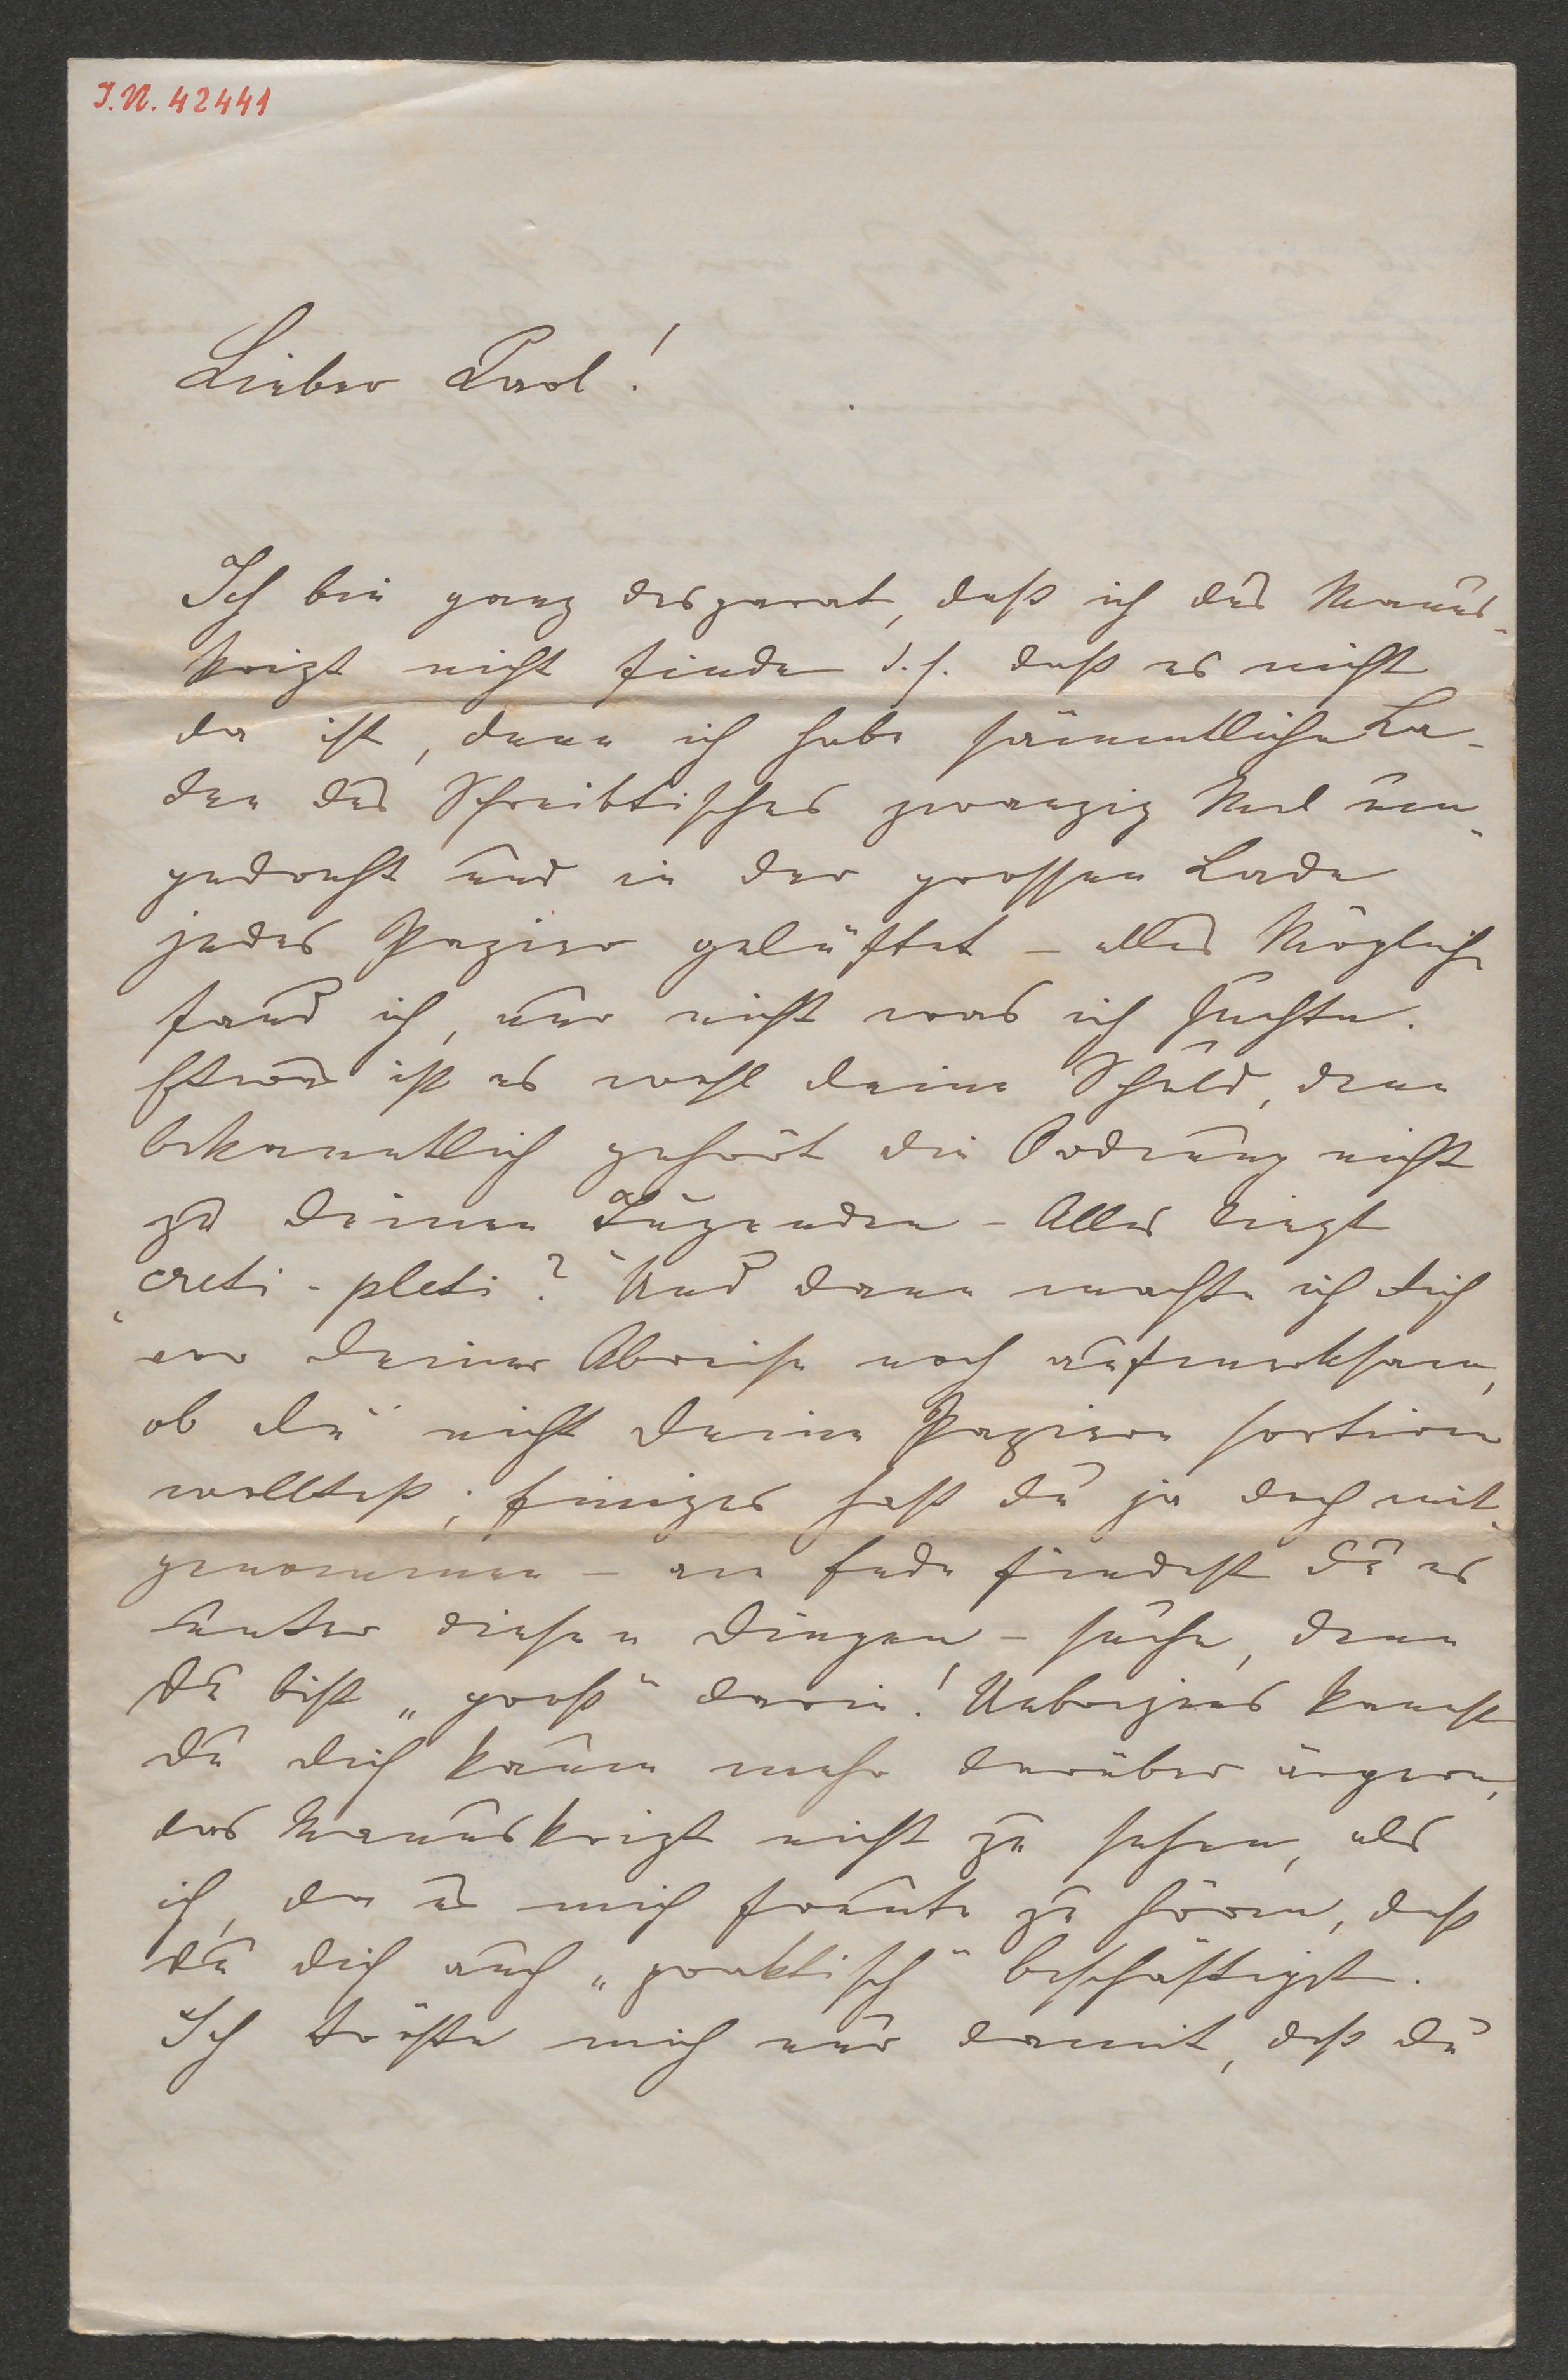 I.N. 42441
Lieber Carl!
Ich bin ganz desparat, daß ich das Manus-
kript nicht finde d.h. daß es nicht
da ist, denn ich habe sämmtliche La-
den des Schreibtisches zwanzig Mal um-
gedreht und in der grossen Lade
jedes Papier gelüftet – alles Mögliche
fand ich, nur nicht was ich suchte.
Etwas ist es wohl deine Schuld, denn
bekanntlich gehört die Ordnung nicht
zu deinen Tugenden – Alles liegt
creti-pleti? Und dann machte ich dich
vor deiner Abreise noch aufmerksam,
ob du nicht deine Papiere sortiren
wolltest; Einiges hast du ja doch mit-
genommen – am Ende findest du es
unter diesen Dingen – suche, denn
du bist „groß" darin! Uebrigens kannst
du dich kaum mehr darüber ärgern,
das Manuskript nicht zu sehen, als
ich, da es mich freute zu hören, daß
du dich auch „praktisch" beschäftigst.
Ich tröste mich nur damit, daß du